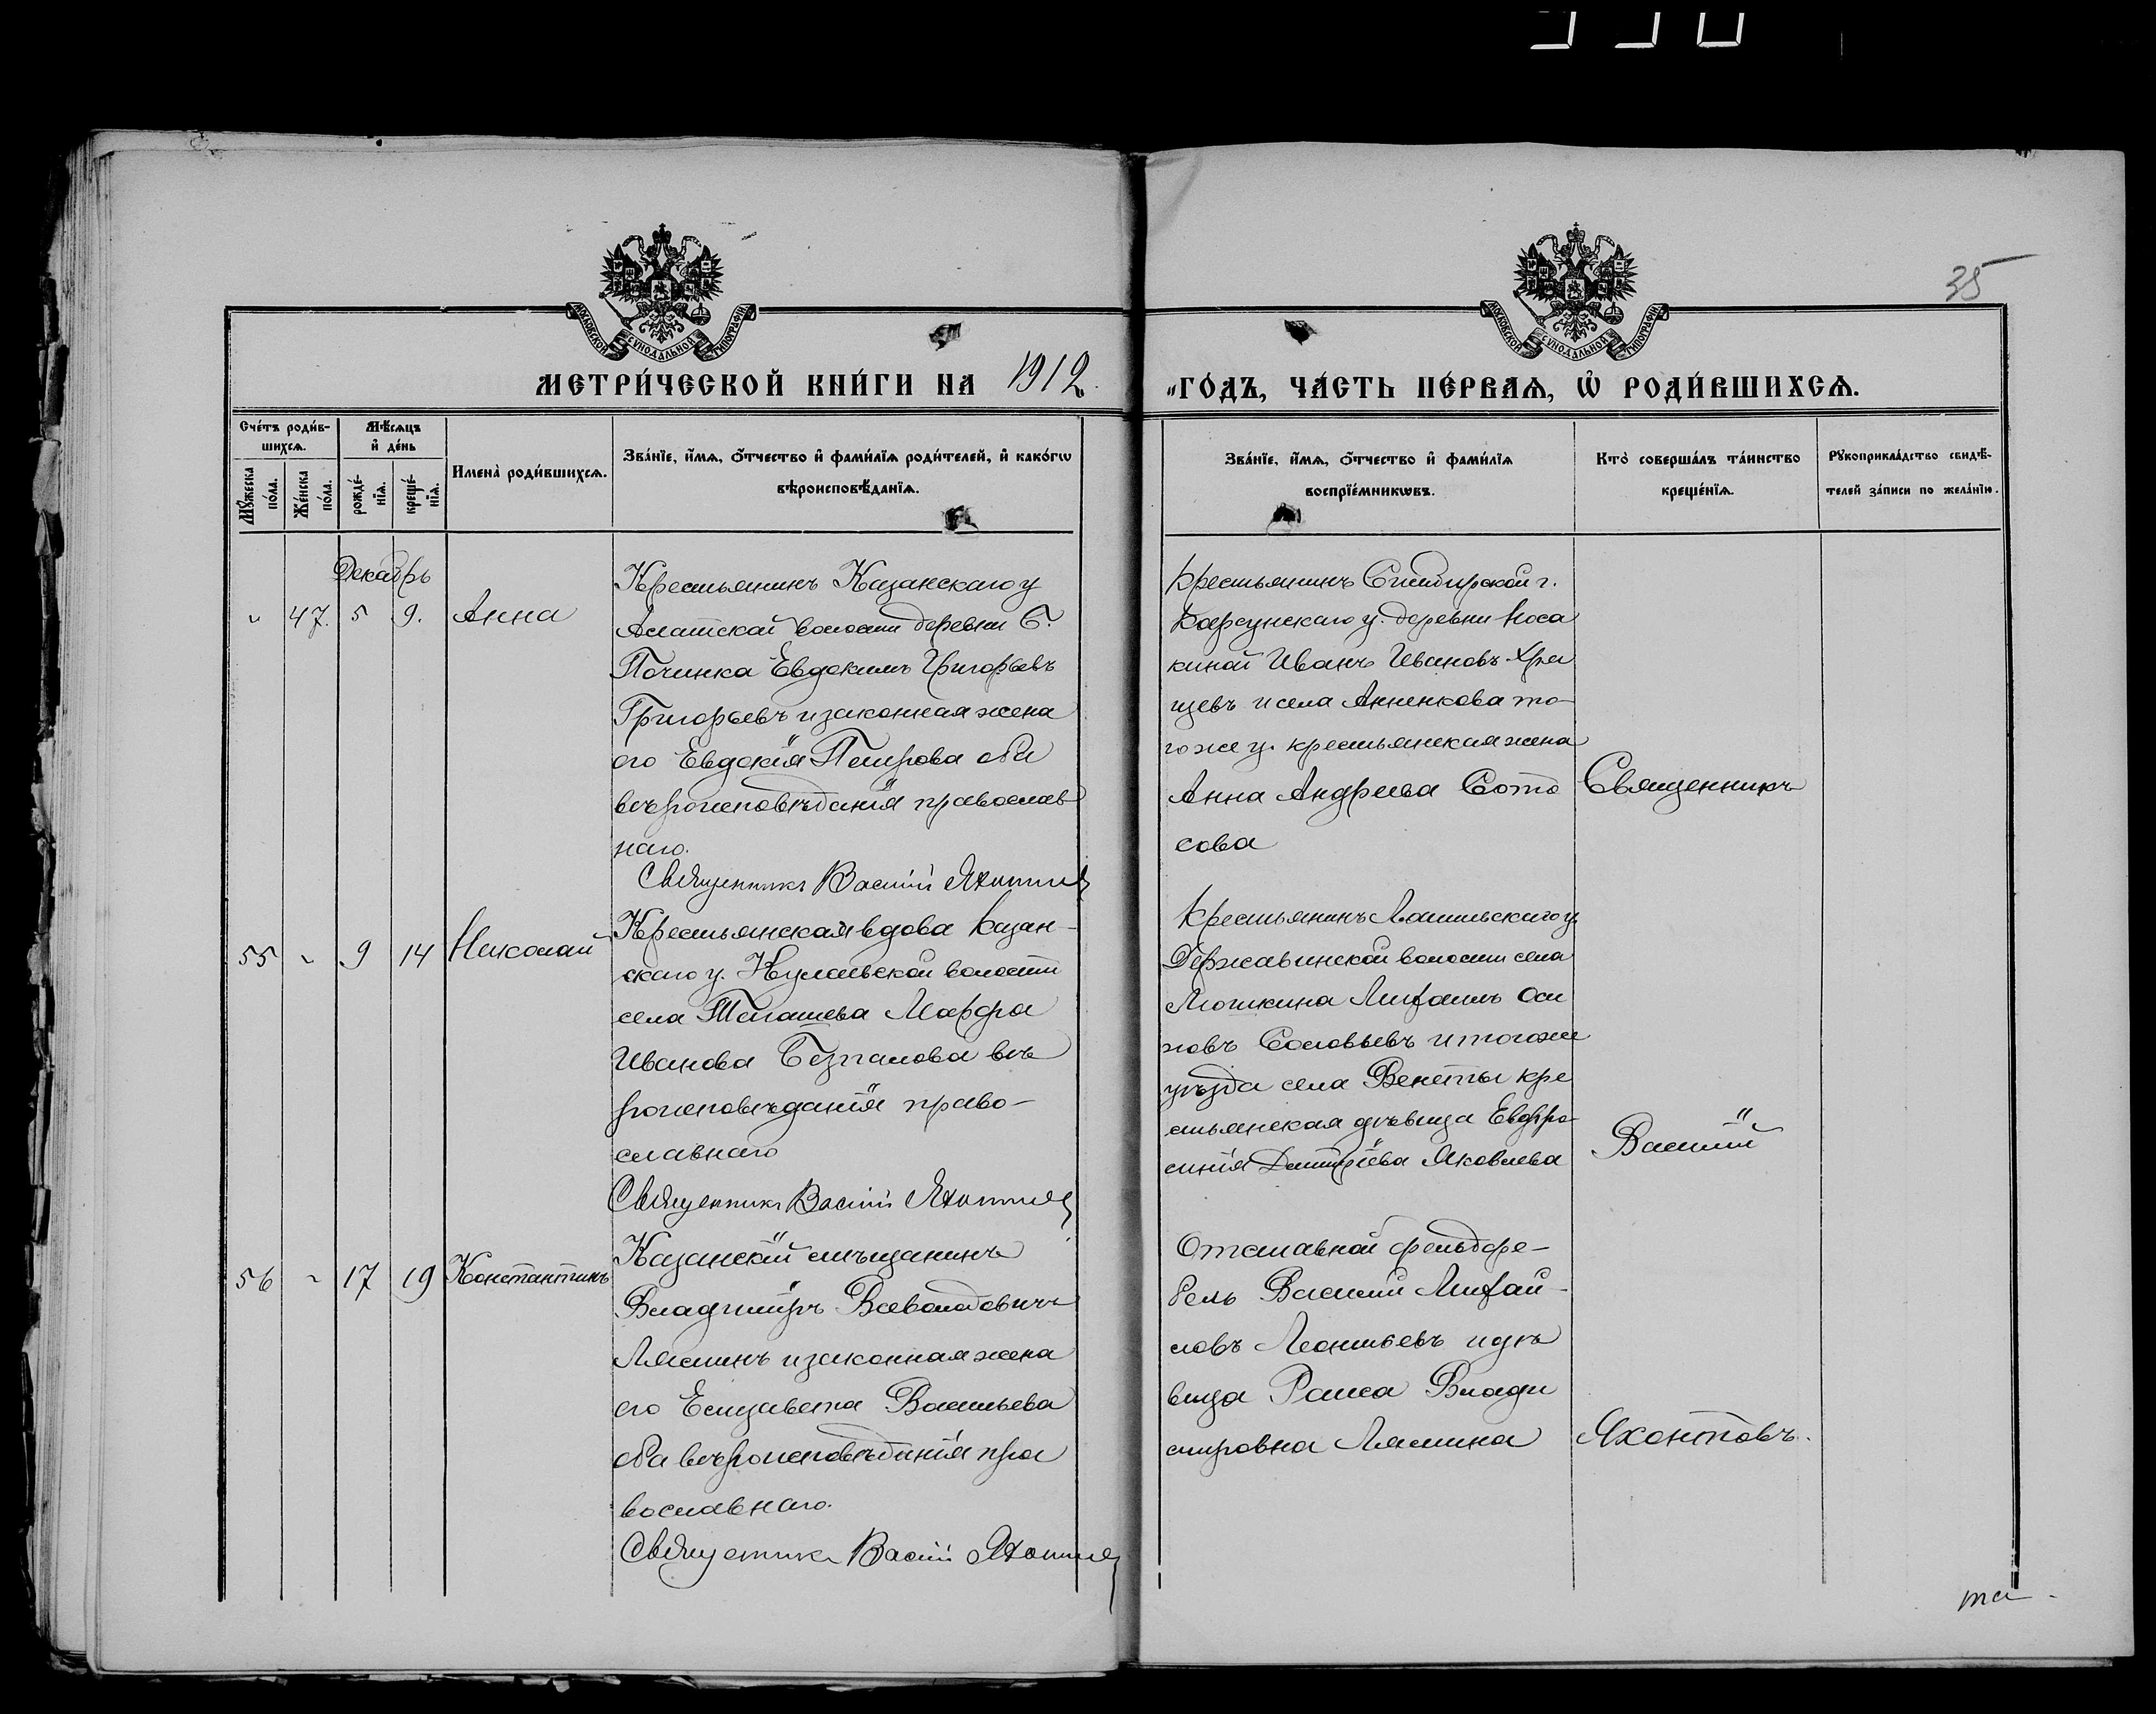 35
МОСКОВСКОЙ СѴНОДАЛЬНОЙ ТИПОГРАФІИ
МОСКОВСКОЙ СѴНОДАЛЬНОЙ ТИПОГРАФІИ
МЕТРИ́ЧЕСКОЙ КНИ́ГИ НА 1912.
ГО́ДЪ, ЧА́СТЬ ПЕ́РВАѦ, Ѡ҆ РОДИ́ВШИХСѦ.
Сче́тъ роди́в-
шихсѧ.
Мѣ́сѧцъ
и҆ де́нь
Мꙋ́жеска
по́ла.
Же́нска
по́ла.
рожде́-
нїѧ.
креще́-
нїѧ.
Имена̀ роди́вшихсѧ.
Зва́нїе, и҆́мѧ, ѻ҆́тчество и҆ фами́лїѧ роди́телей, и҆ како́гѡ
вѣроисповѣ́данїѧ.
Зва́нїе, и҆́мѧ, ѻ҆́тчество и҆ фами́лїѧ
воспрїе́мникѡвъ.
Кто̀ соверша́лъ та́инство
креще́нїѧ.
Рꙋкоприкла́дство свидѣ́-
телей за́писи по жела́нїю.
Декабрь
" 47. 5 9. Анна
Крестьянинъ Казанскаго у
Алатской волости деревни Б.
Починка Евдокимъ Григорьевъ
Григорьевъ и законная жена
его Евдокія Петрова оба
вѣроисповѣданія православ
наго.
Священникъ Василій Яхонтовъ
Крестьянинъ Симбирской г.
Карсунскаго у. деревни Носа
киной Иванъ Ивановъ Хра
щевъ и села Анненкова то-
го же у. крестьянская жена
Анна Андреева Сото
сова
Священникъ
55 " 9 14 Николай
Крестьянская вдова Казан-
скаго у. Кулаевской волости
села Тагашева Марфа
Иванова Безпалова вѣ
роисповѣданія право-
славнаго
Священникъ Василій Яхонтовъ
Крестьянинъ Лаишевскаго у.
Державинской волости села
Михаилъ Оси
повъ Соловьевъ и того же
уѣзда села Венеты кре
стьянская дѣвица Евфро-
синія Димитріева Яковлева
Василій
56 " 17 19 Константинъ
Казанскій мѣщанинъ
Владиміръ Всеволодовичъ
Лямминъ и законная жена
его Елизавета Васильева
оба вѣроисповѣданія пра
вославнаго.
Священникъ Василій Яхонтовъ
Отставной фельдфе-
бель Василій Михай-
ловъ Леонтьевъ и дѣ
вица Раиса Влади
мировна Лямина
Яхонтовъ.
та-